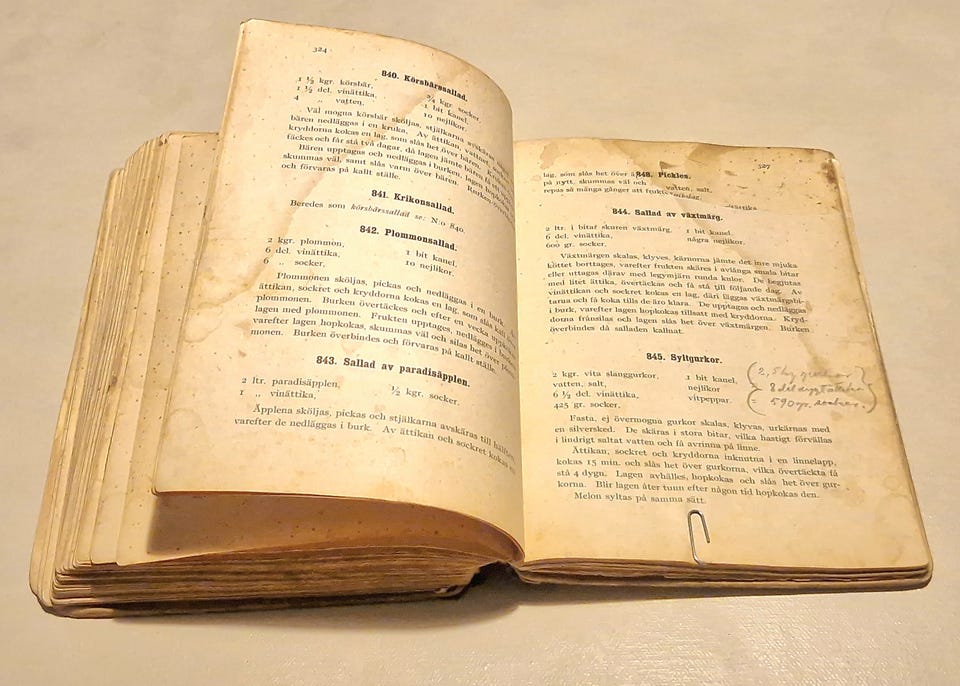 324
840. Körsbärssallad.
1 ½ kgr. körsbär, ¾ kgr. socker,
1 ½ del. vinättika, 1 bit kanel.
4 „ vatten, 10 nejlikor.
Väl mogna körsbär sköljas, stjälkarna avskäras,
bären nedläggas i en kruka. Av ättikan, vattnet,
kryddorna kokas en lag, som slås het över bären.
täckes och får stå två dagar, då lagen
Bären upptagas och nedläggas i burken, lagen hopkokas,
skummas väl, samt slås varm över bären. Burken
och förvaras på kallt ställe.
841. Krikonsallad.
Beredes som körsbärssallad se: N:o 840.
842. Plommonsallad.
2 kgr. plommon, 1 bit kanel.
6 del. vinättika, 10 nejlikor.
6 „ socker,
Plommonen sköljas, pickas och nedläggas i en burk. A
ättikan, sockret och kryddorna kokas en lag, som slås kall över
plommonen. Burken övertäckes och efter en vecka
lagen med plommonen. Frukten upptages, nedlägges i burken,
varefter lagen hopkokas, skummas väl och silas het över
monen. Burken överbindes och förvaras på kallt ställe.
843. Sallad av paradisäpplen.
2 ltr. paradisäpplen, ½ kgr. socker.
1 „ vinättika,
Äpplena sköljas, pickas och stjälkarna avskäras till hälften
varefter de nedläggas i burk. Av ättikan och sockret kokas
327
lag, som slås het över 848. Pickles.
på nytt, skummas väl och vatten, salt,
repas så många gånger att frukten
ättika
844. Sallad av växtmärg.
2 ltr. i bitar skuren växtmärg, 1 bit kanel,
6 del. vinättika, några nejlikor.
600 gr. socker,
Växtmärgen skalas, klyves, kärnorna jämte det inre mjuka
köttet borttages, varefter frukten skäres i avlånga smala bitar
eller uttagas därav med legymjärn runda kulor. De begjutas
med litet ättika, övertäckas och få stå till följande dag. Av
vinättikan och sockret kokas en lag, däri läggas växtmärgsbi-
tarna och få koka tills de äro klara. De upptagas och nedläggas
i burk, varefter lagen hopkokas tillsatt med kryddorna. Kryd-
dorna frånsilas och lagen slås het över växtmärgen. Burken
överbindes då salladen kallnat.
845. Syltgurkor.
2 kgr. vita slanggurkor, 1 bit kanel,
vatten, salt, nejlikor
6 ½ del. vinättika, vitpeppar.
425 gr. socker,
2,5 kg gurkor
= 8 del
= 590 gr. socker.
Fasta, ej övermogna gurkor skalas, klyvas, urkärnas med
en silversked. De skäras i stora bitar, vilka hastigt förvällas
i lindrigt saltat vatten och få avrinna på linne.
Ättikan, sockret och kryddorna inknutna i en linnelapp,
kokas 15 min. och slås het över gurkorna, vilka övertäckta få
stå 4 dygn. Lagen avhälles, hopkokas och slås het över gur-
korna. Blir lagen åter tunn efter någon tid hopkokas den.
Melon syltas på samma sätt.